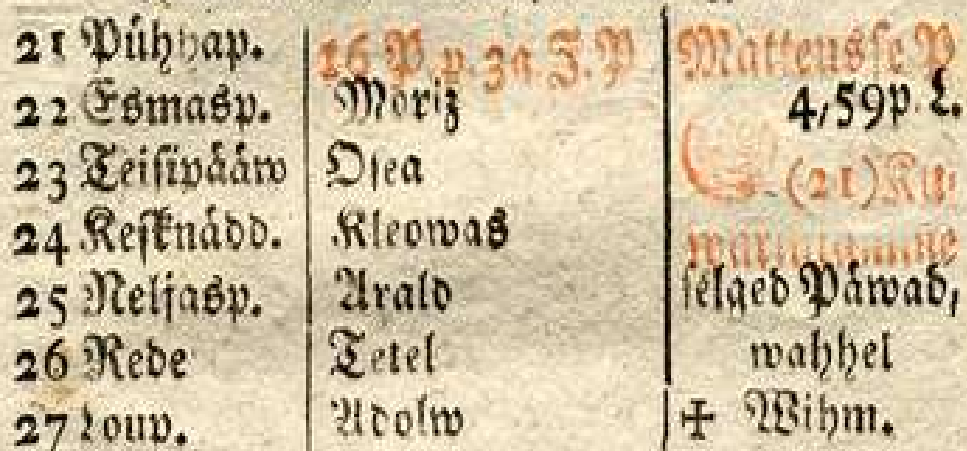 21 Pühhap. 16 P. p. 3a. J. P Matteusse P
22 Esmasp. Moriz 4,59 p. L.
23 Teisipääw Osea (21) Ku-
24 Kesknädd. Kleowas warjutamine
25 Neljasp. Arald selged Päwad,
26 Rede Tetel wahhel
27 Loup. Adolw ✠ Wihm.